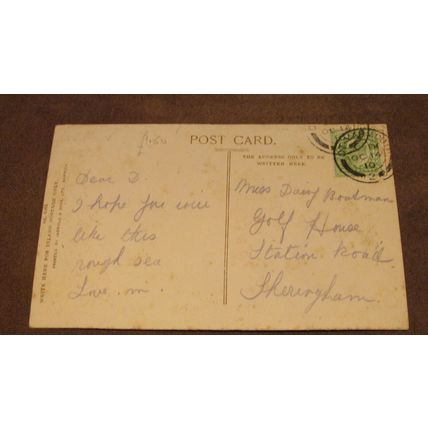 £1.50
POST CARD.
THE ADDRESS ONLY TO BE
WRITTEN HERE.
WRITE HERE FOR INLAND POSTAGE ONLY
Dear D.
I hope you will
like this
rough sea
Love.
Miss Daisy Boatman
Golf House
Station Road
Sheringham.